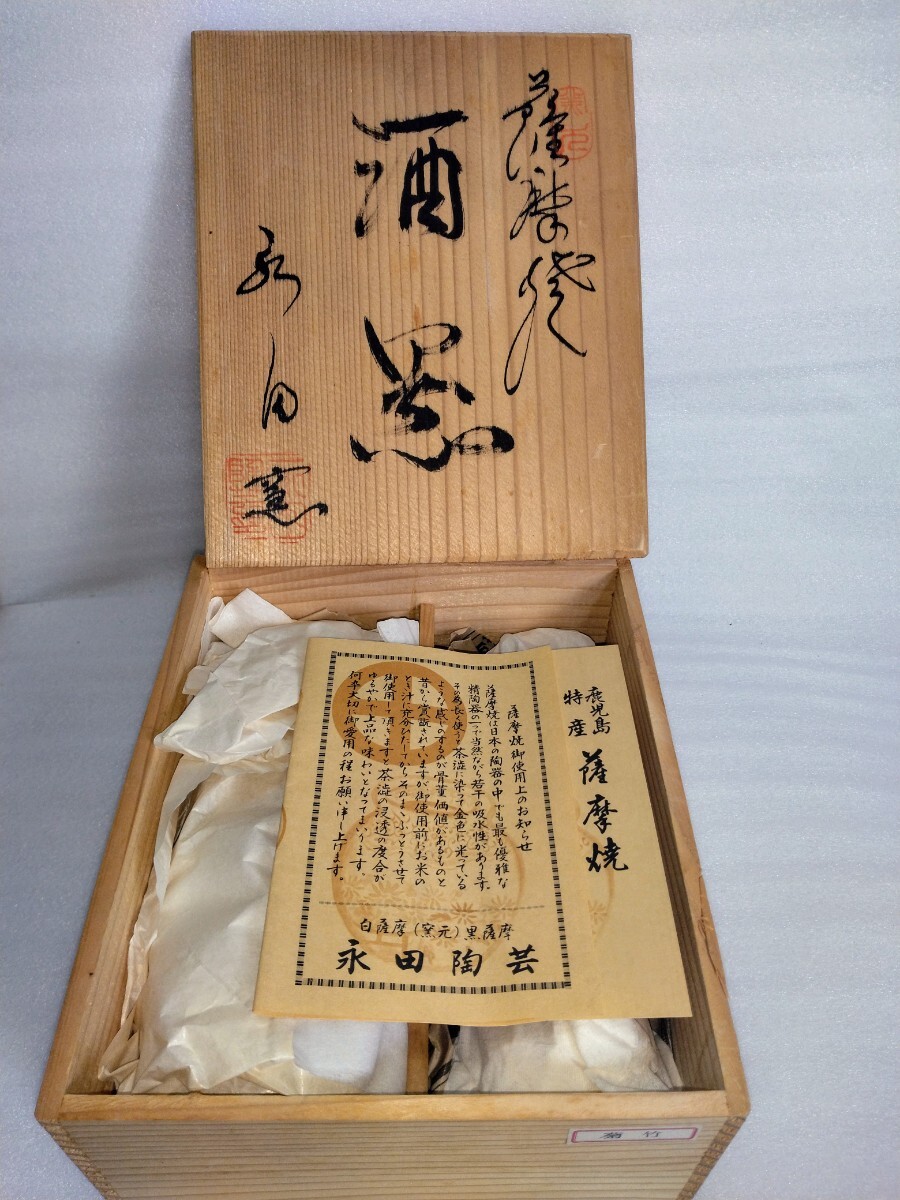 薩摩焼
酒器
永田窯
鹿児島
特産
薩摩焼
薩摩焼御使用上のお知らせ
薩摩焼は日本の陶器の中でも最も優雅な
精陶器の一つで当然ながら若干の吸水性があります。
その為長く使うと茶澁に染って金色に光っている
ような感じのするのが骨董価値があるものと
昔から賞説されていますが御使用前にお米の
とぎ汁に充分ひたしてからそのまゝふっとうさせて
御使用して頂きますと茶澁の浸透の度合が
ゆるやかで上品な味わいとなってまいります。
何卒大切に御愛用の程お願い申し上げます。
白薩摩(窯元)黒薩摩
永田陶芸
菊竹